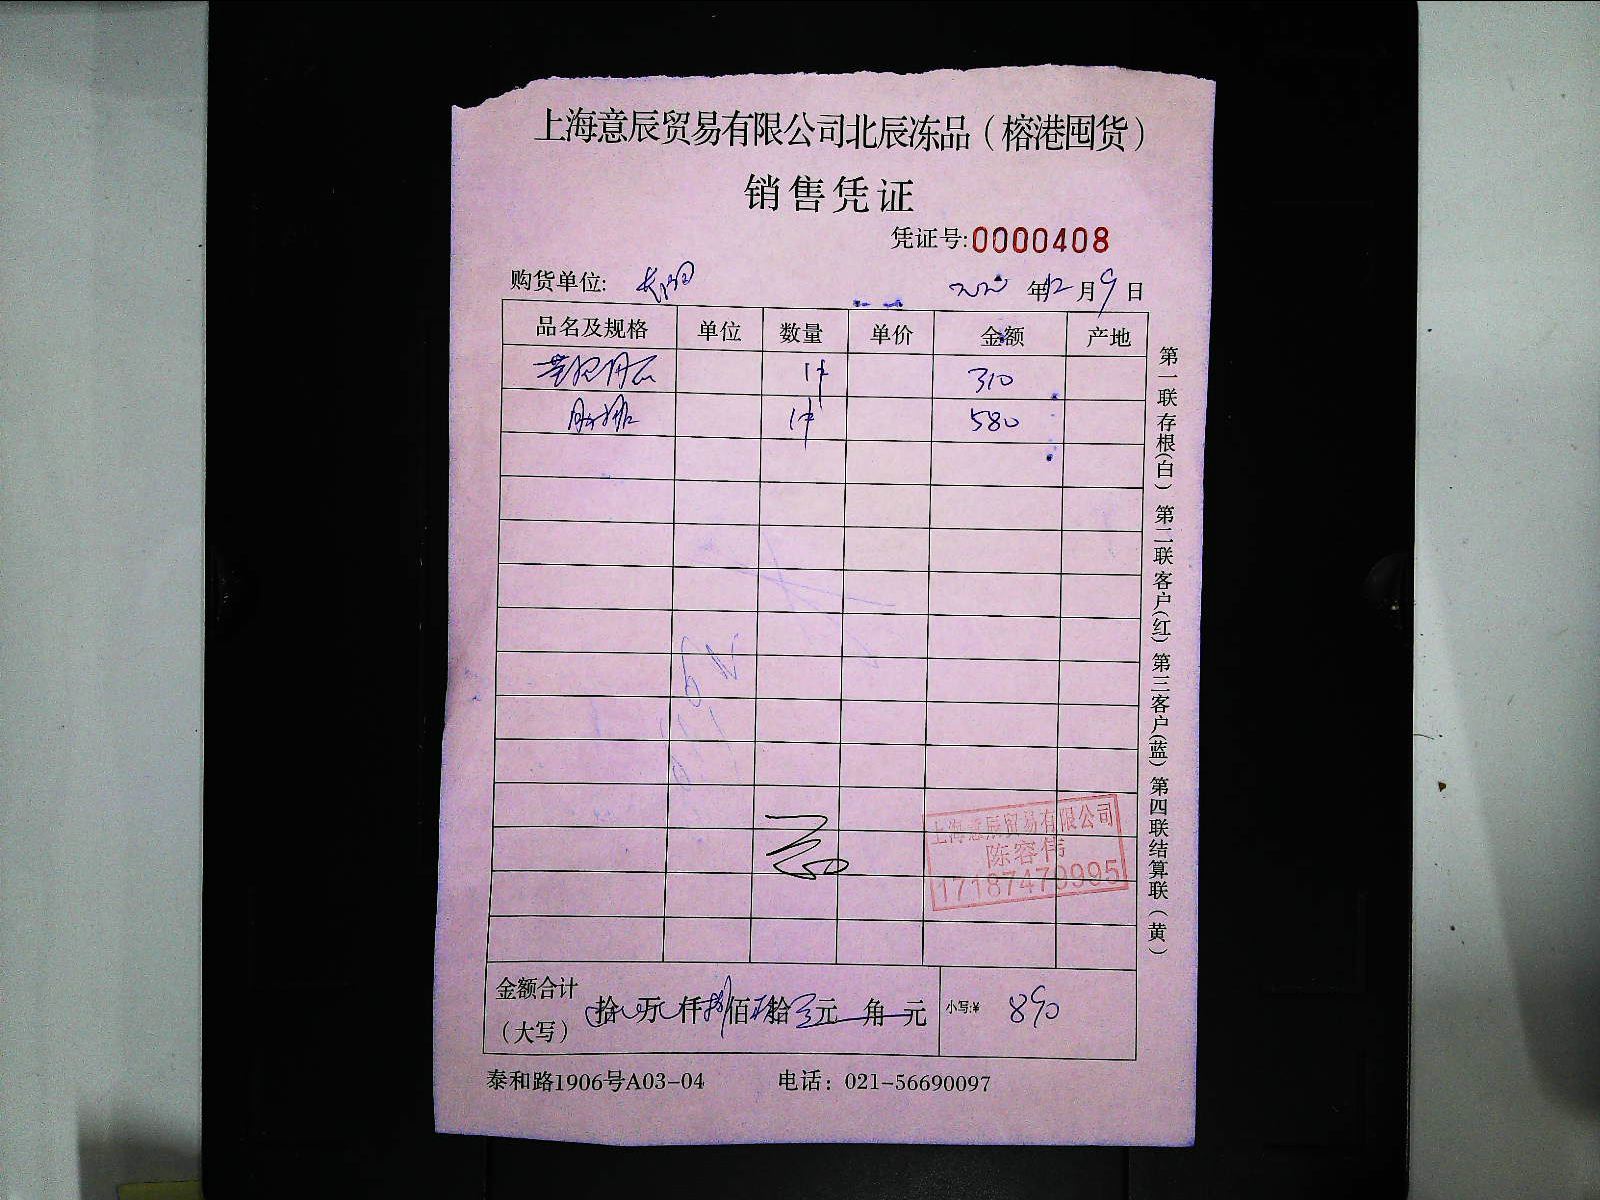 上海意辰贸易有限公司北辰冻品（榕港囤货）
销售凭证
凭证号:0000408
购货单位:
年12月9日
品名及规格 单位 数量 单价 金额 产地
1件 310
1件 580
第一联存根(白) 第二联客户(红) 第三客户(蓝) 第四联结算联(黄)
上海意辰贸易有限公司
陈容伟
17187470995
金额合计
(大写)
拾 万 仟 捌佰 拾 元 角 元
小写:¥ 890
泰和路1906号A03-04 电话：021-56690097